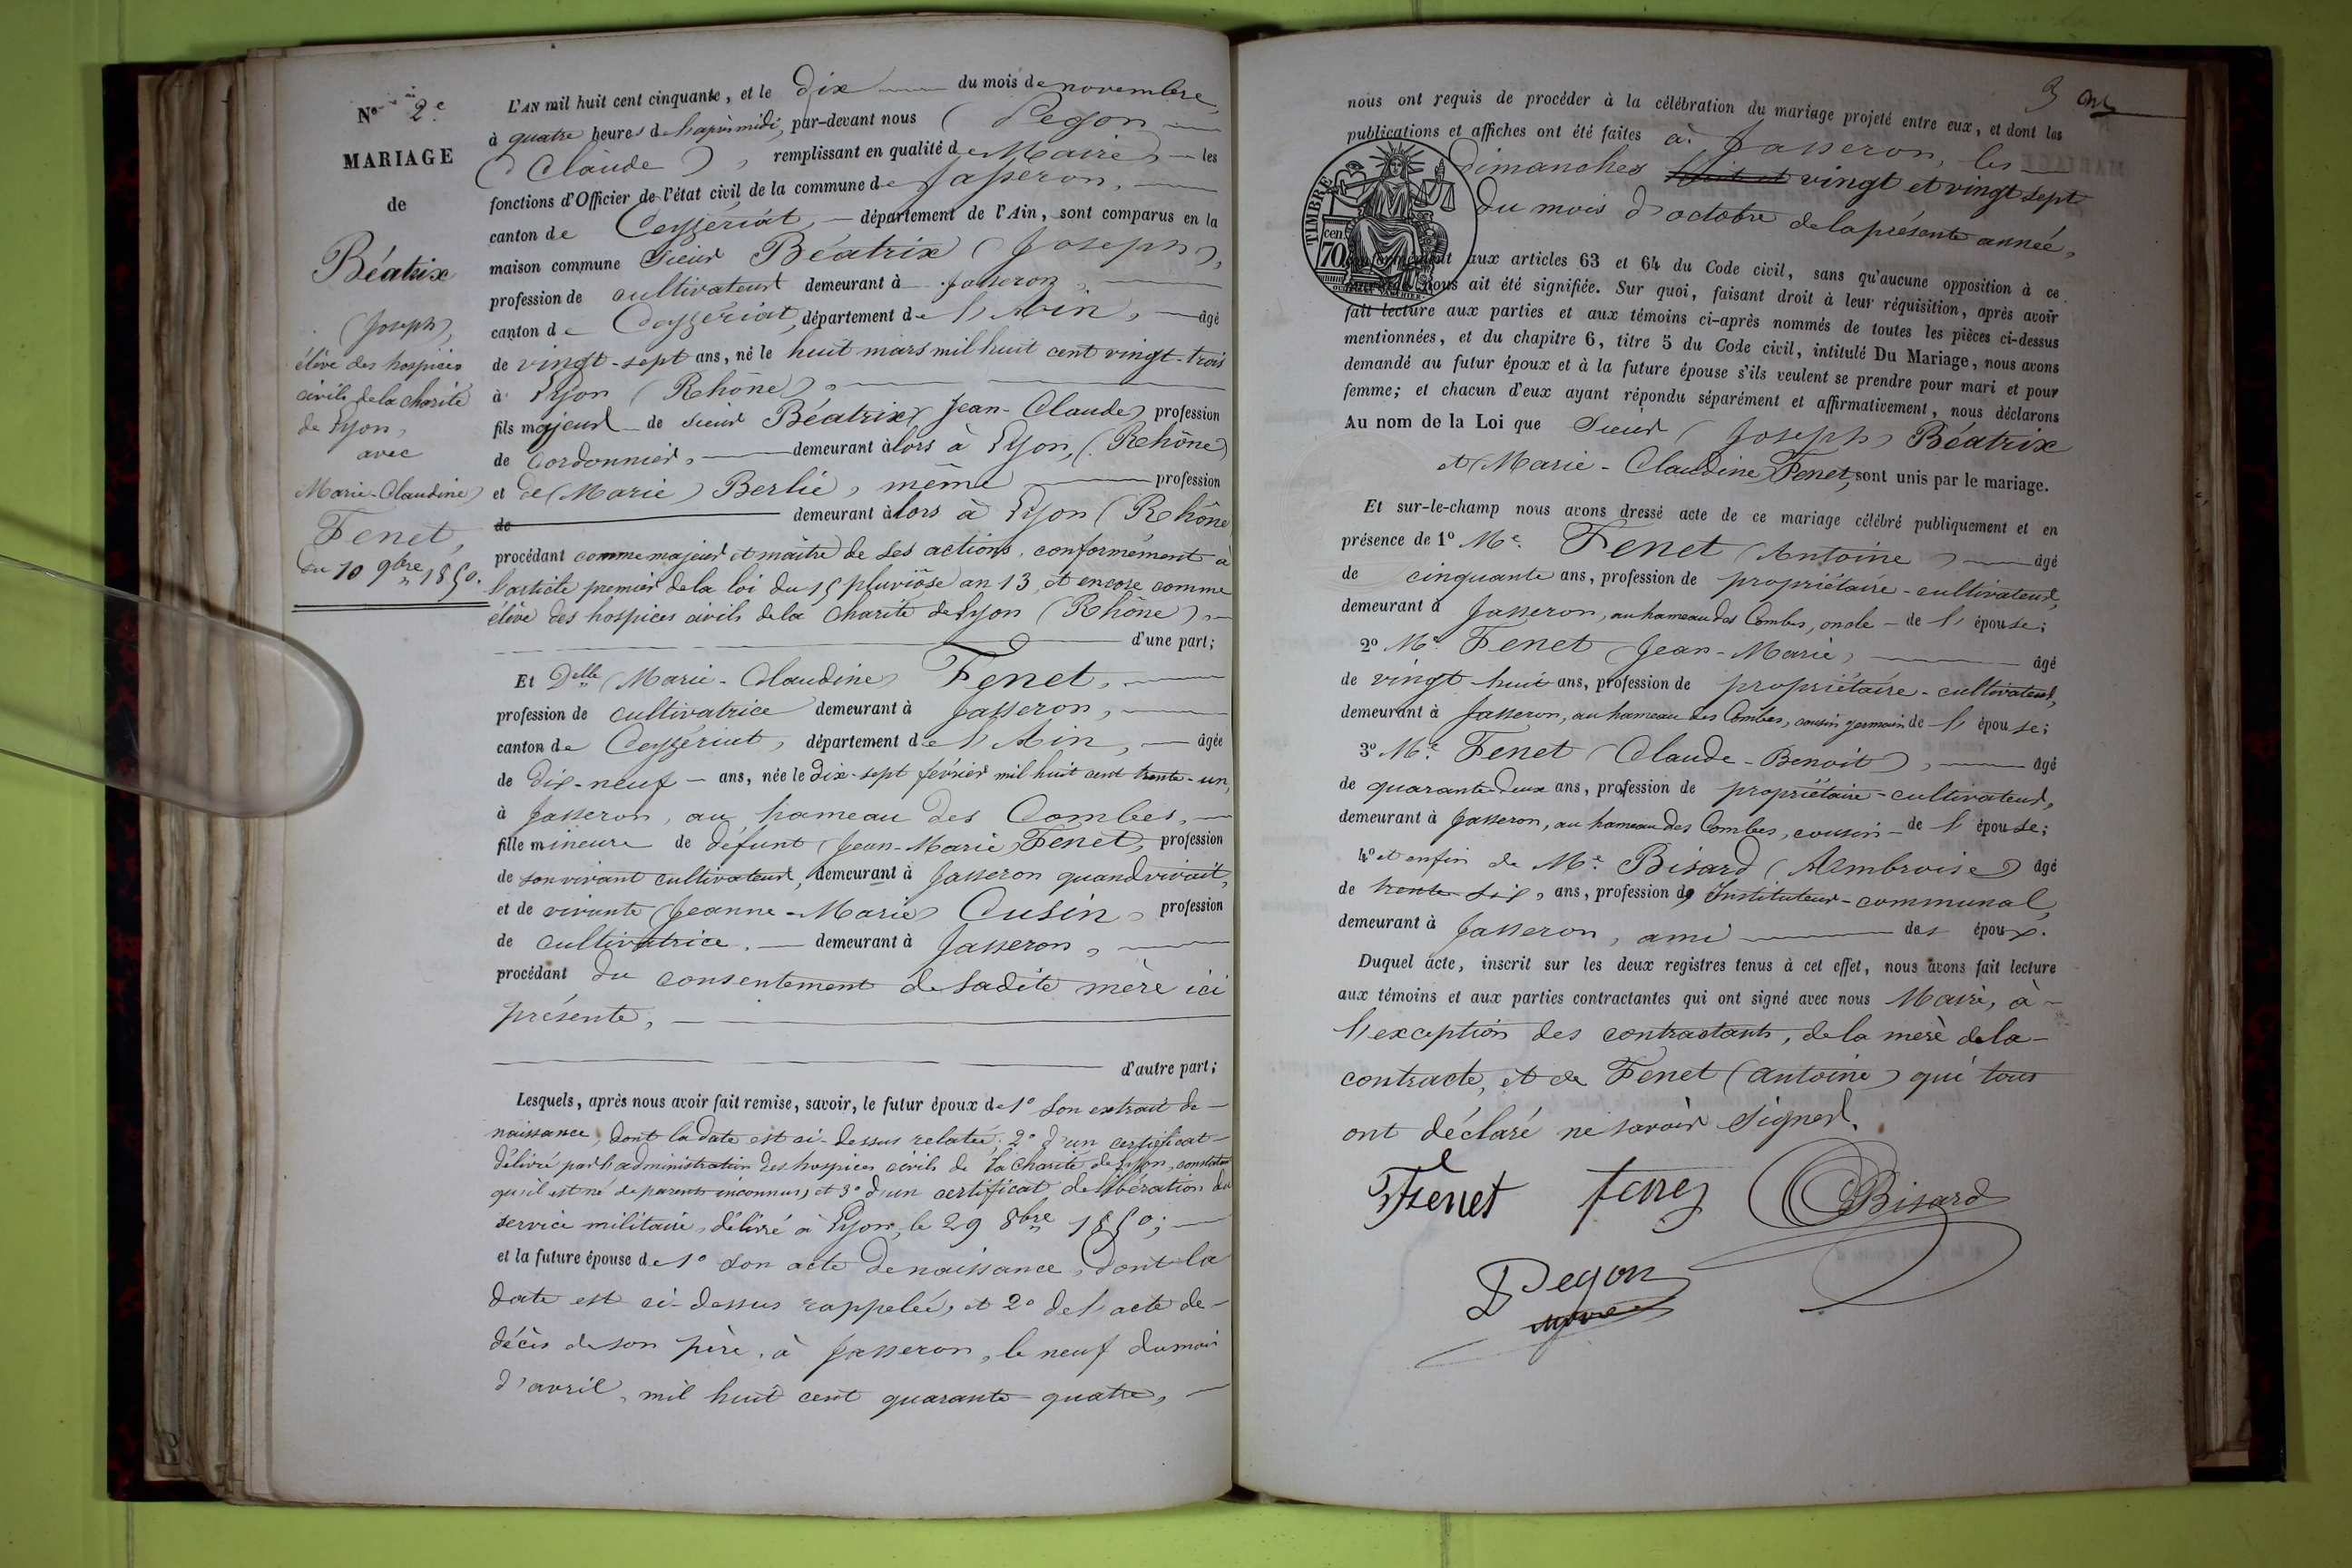 No 2e
MARIAGE
de
Béatrix
(Joseph)
élève des hospices
civils de la charité
de Lyon,
avec
(Marie-Claudine)
Fenet,
du 10 9bre 1850.
L'AN mil huit cent cinquante, et le dix du mois de novembre,
à quatre heures de l'après midi, par-devant nous (Pegon
(Claude), remplissant en qualité de Maire, les
fonctions d'Officier de l'état civil de la commune de Jasseron,
canton de Ceyzériat, département de l'Ain, sont comparus en la
maison commune sieur Béatrix (Joseph),
profession de cultivateur demeurant à Jasseron,
canton de Ceyzériat, département de l'Ain, âgé
de vingt-sept ans, né le huit mars mil huit cent vingt-trois
à Lyon (Rhône),
fils majeur de sieur Béatrix (Jean-Claude) profession
de Cordonnier, demeurant alors à Lyon, (Rhône)
et de (Marie) Berlie, même profession
de demeurant alors à Lyon (Rhône
procédant comme majeur et maître de ses actions, conformément à
l'article premier de la loi du 15 pluviôse an 13, et encore comme
élève des hospices civils de la Charité de Lyon (Rhône),
d'une part;
Et Delle (Marie-Claudine) Fenet,
profession de cultivatrice demeurant à Jasseron,
canton de Ceyzériat, département de l'Ain, âgée
de dix-neuf ans, née le dix-sept février mil huit cent trente-un,
à Jasseron, au hameau des Combes,
fille mineure de défunt (Jean-Marie) Fenet, profession
de son vivant cultivateur, demeurant à Jasseron quand vivait,
et de vivante (Jeanne-Marie) Cusin, profession
de cultivatrice, demeurant à Jasseron,
procédant du consentement de sadite mère ici
présente,
d'autre part;
Lesquels, après nous avoir fait remise, savoir, le futur époux de 1° son extrait de
naissance, dont la date est ci-dessus relatée; 2° d'un certificat
délivré par l'administration des hospices civils de la Charité de Lyon, constatant
qu'il est né de parents inconnus, et 3° d'un certificat de libération du
service militaire, délivré à Lyon, le 29 8bre 1850;
et la future épouse de 1° son acte de naissance, dont la
date est ci-dessus rappelée, et 2° de l'acte de
décès de son père, à Jasseron, le neuf du mois
d'avril, mil huit cent quarante-quatre,
3
nous ont requis de procéder à la célébration du mariage projeté entre eux, et dont les
publications et affiches ont été faites à Jasseron, les
dimanches vingt et vingt sept
du mois d'octobre de la présente année,
TIMBRE
70 cen
aux articles 63 et 64 du Code civil, sans qu'aucune opposition à ce
nous ait été signifiée. Sur quoi, faisant droit à leur réquisition, après avoir
fait lecture aux parties et aux témoins ci-après nommés de toutes les pièces ci-dessus
mentionnées, et du chapitre 6, titre 5 du Code civil, intitulé Du Mariage, nous avons
demandé au futur époux et à la future épouse s'ils veulent se prendre pour mari et pour
femme; et chacun d'eux ayant répondu séparément et affirmativement, nous déclarons
Au nom de la Loi que Sieur (Joseph) Béatrix
et (Marie-Claudine) Fenet, sont unis par le mariage.
Et sur-le-champ nous avons dressé acte de ce mariage célébré publiquement et en
présence de 1° Mr. Fenet (Antoine) âgé
de cinquante ans, profession de propriétaire-cultivateur,
demeurant à Jasseron, au hameau des Combes, oncle de l'épouse;
2° Mr. Fenet (Jean-Marie) âgé
de vingt-huit ans, profession de propriétaire-cultivateur,
demeurant à Jasseron, au hameau des Combes, cousin germain de l'épouse;
3° Mr. Fenet (Claude-Benoit), âgé
de quarante-deux ans, profession de propriétaire-cultivateur,
demeurant à Jasseron, au hameau des Combes, cousin de l'épouse;
4° et enfin de Mr. Bisard (Ambroise) âgé
de trente-six, ans, profession d'Instituteur-communal,
demeurant à Jasseron, ami des époux.
Duquel acte, inscrit sur les deux registres tenus à cet effet, nous avons fait lecture
aux témoins et aux parties contractantes qui ont signé avec nous Maire, à
l'exception des contractants, de la mère de la
contracte, et de Fenet (Antoine) qui tous
ont déclaré ne savoir signer.
Fenet fenet Bisard
Pegon